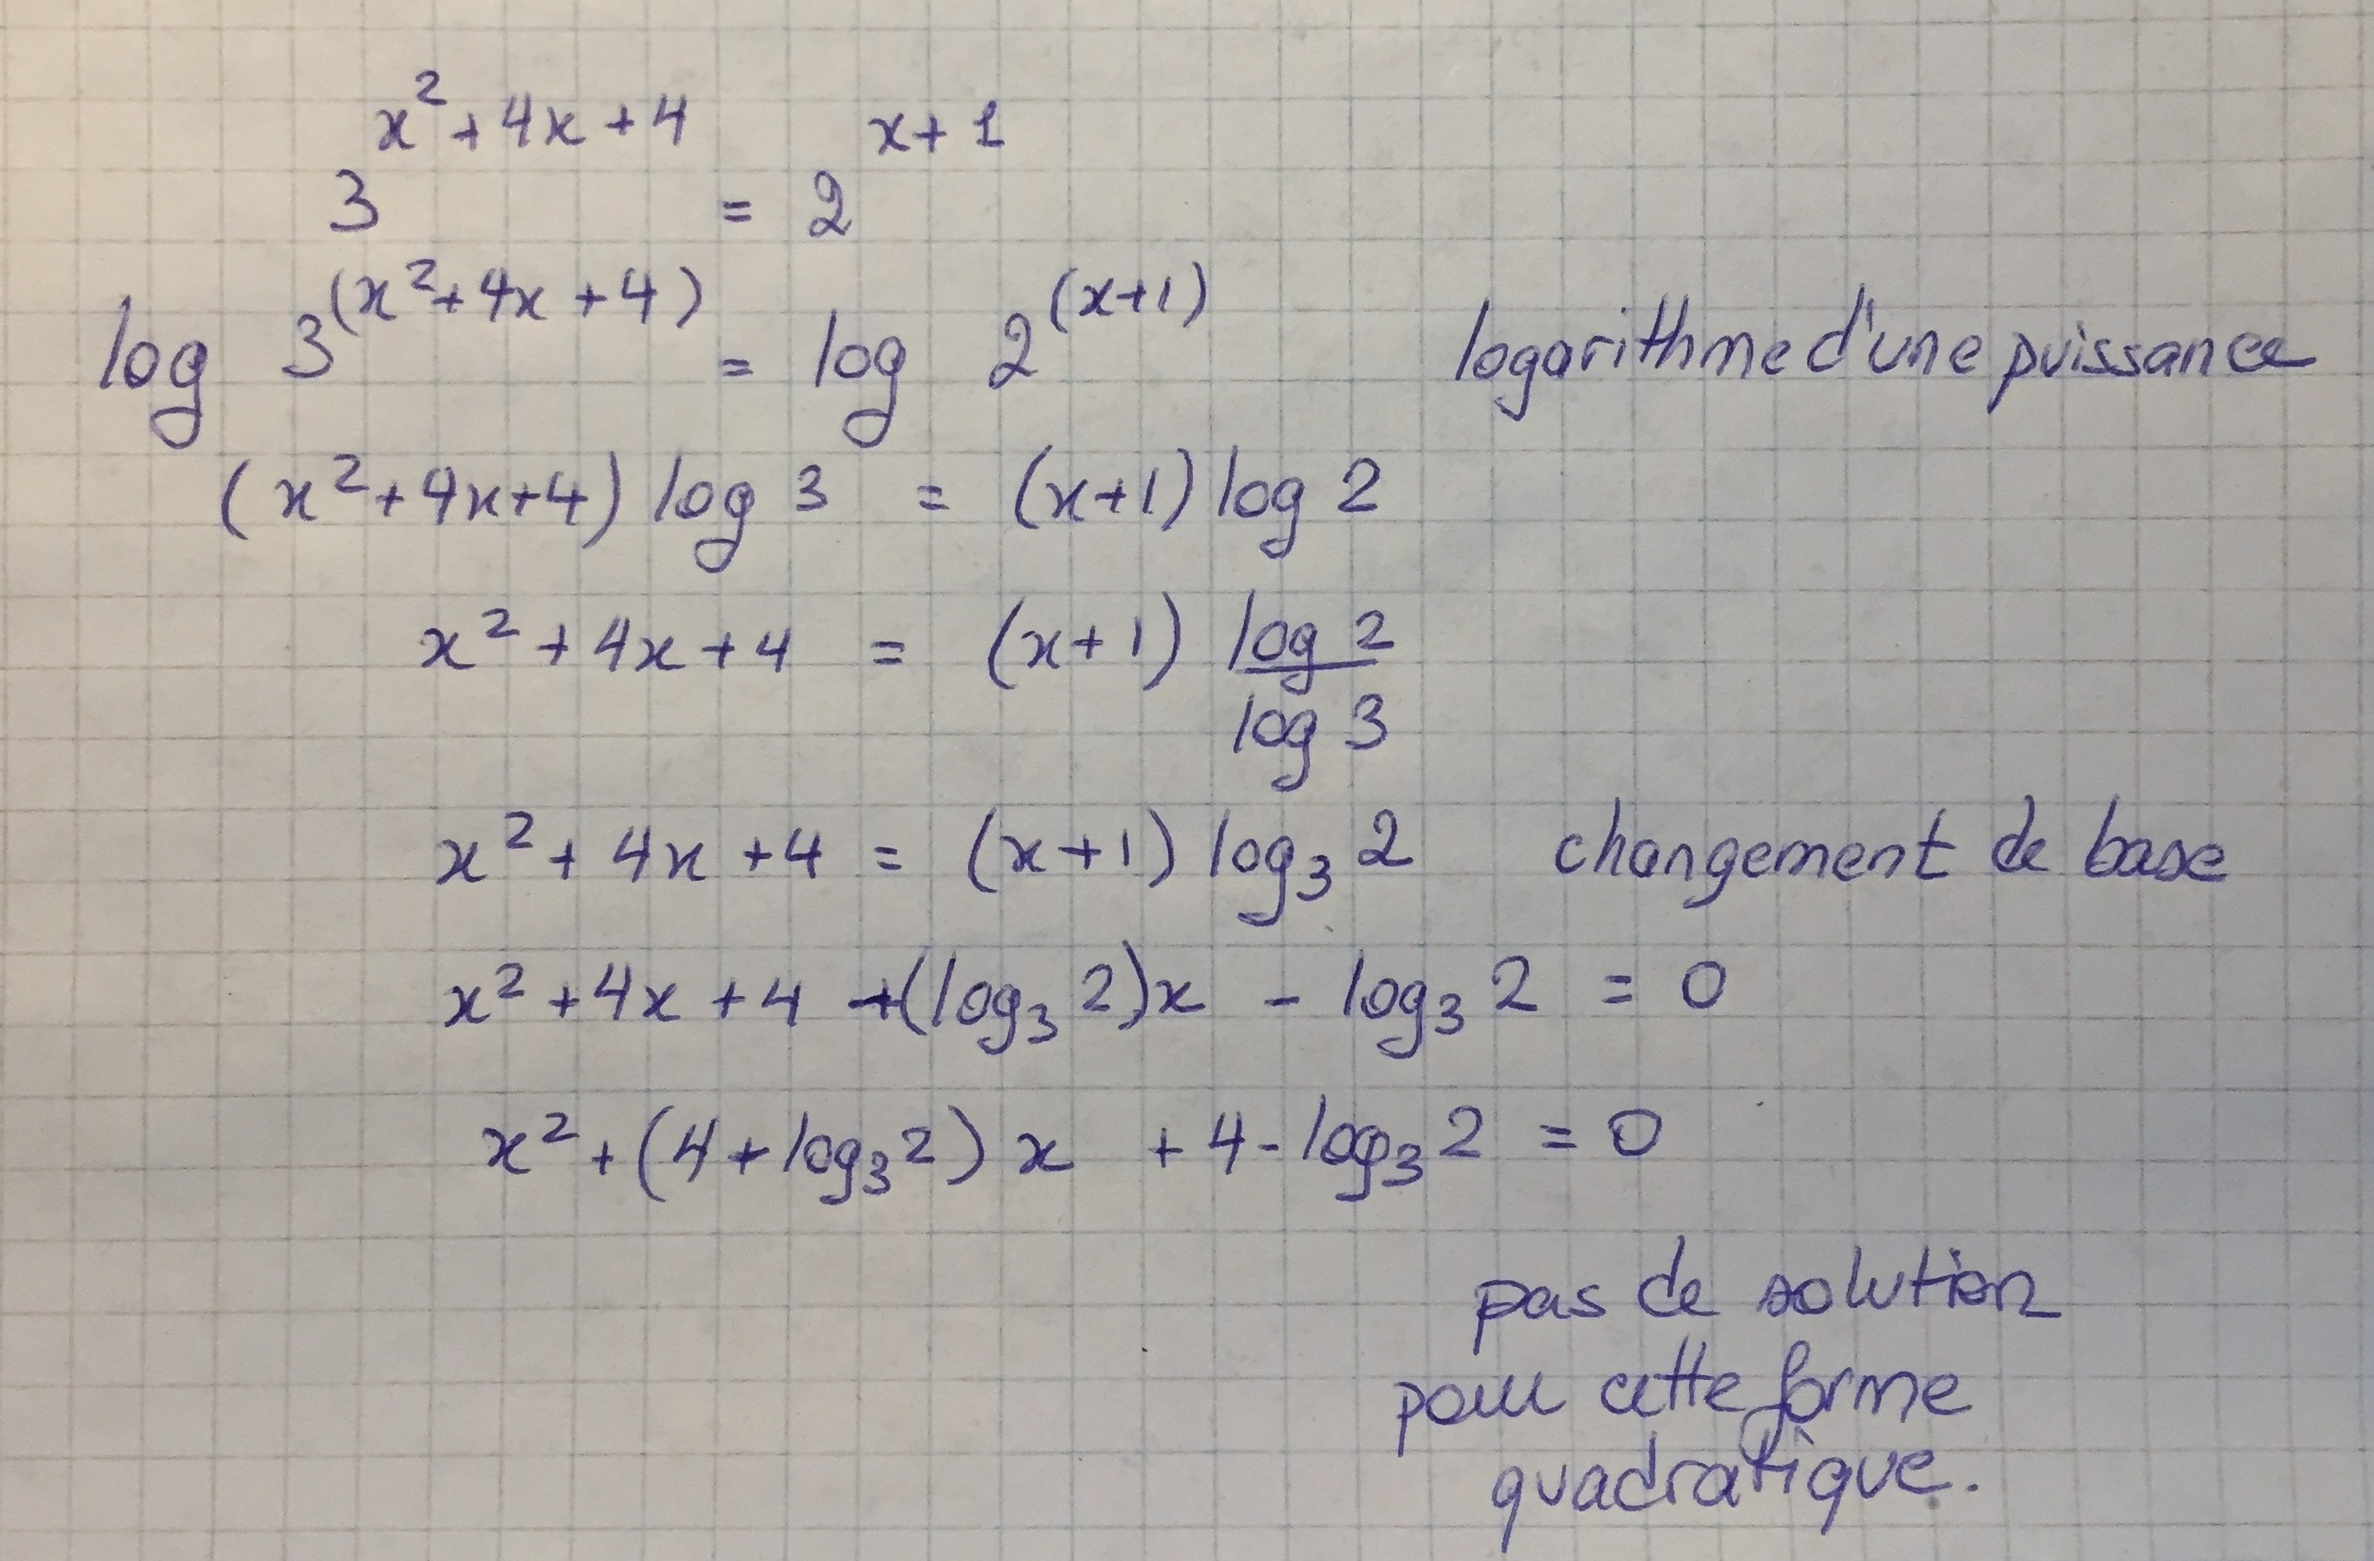 3^(x²+4x+4) = 2^(x+1)
log 3^(x²+4x+4) = log 2^(x+1) logarithme d'une puissance
(x²+4x+4) log 3 = (x+1) log 2
x²+4x+4 = (x+1) log 2 / log 3
x²+4x+4 = (x+1) log₃ 2 changement de base
x²+4x+4 +(log₃ 2)x - log₃ 2 = 0
x²+(4+log₃2) x +4-log₃2 = 0
pas de solution
pour cette forme
quadratique.